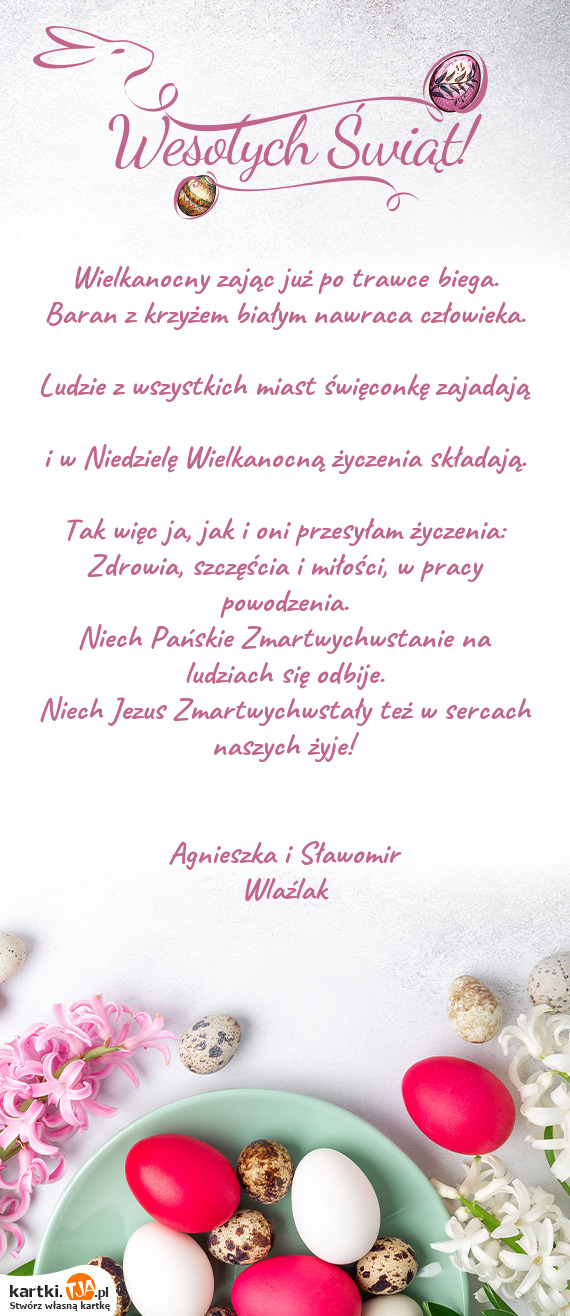 Wesołych Świąt!
Wielkanocny zając już po trawce biega.
Baran z krzyżem białym nawraca człowieka.
Ludzie z wszystkich miast święconkę zajadają
i w Niedzielę Wielkanocną życzenia składają.
Tak więc ja, jak i oni przesyłam życzenia:
Zdrowia, szczęścia i miłości, w pracy
powodzenia.
Niech Pańskie Zmartwychwstanie na
ludziach się odbije.
Niech Jezus Zmartwychwstały też w sercach
naszych żyje!
Agnieszka i Sławomir
Wlaźlak
kartki.TJA.pl
Stwórz własną kartkę